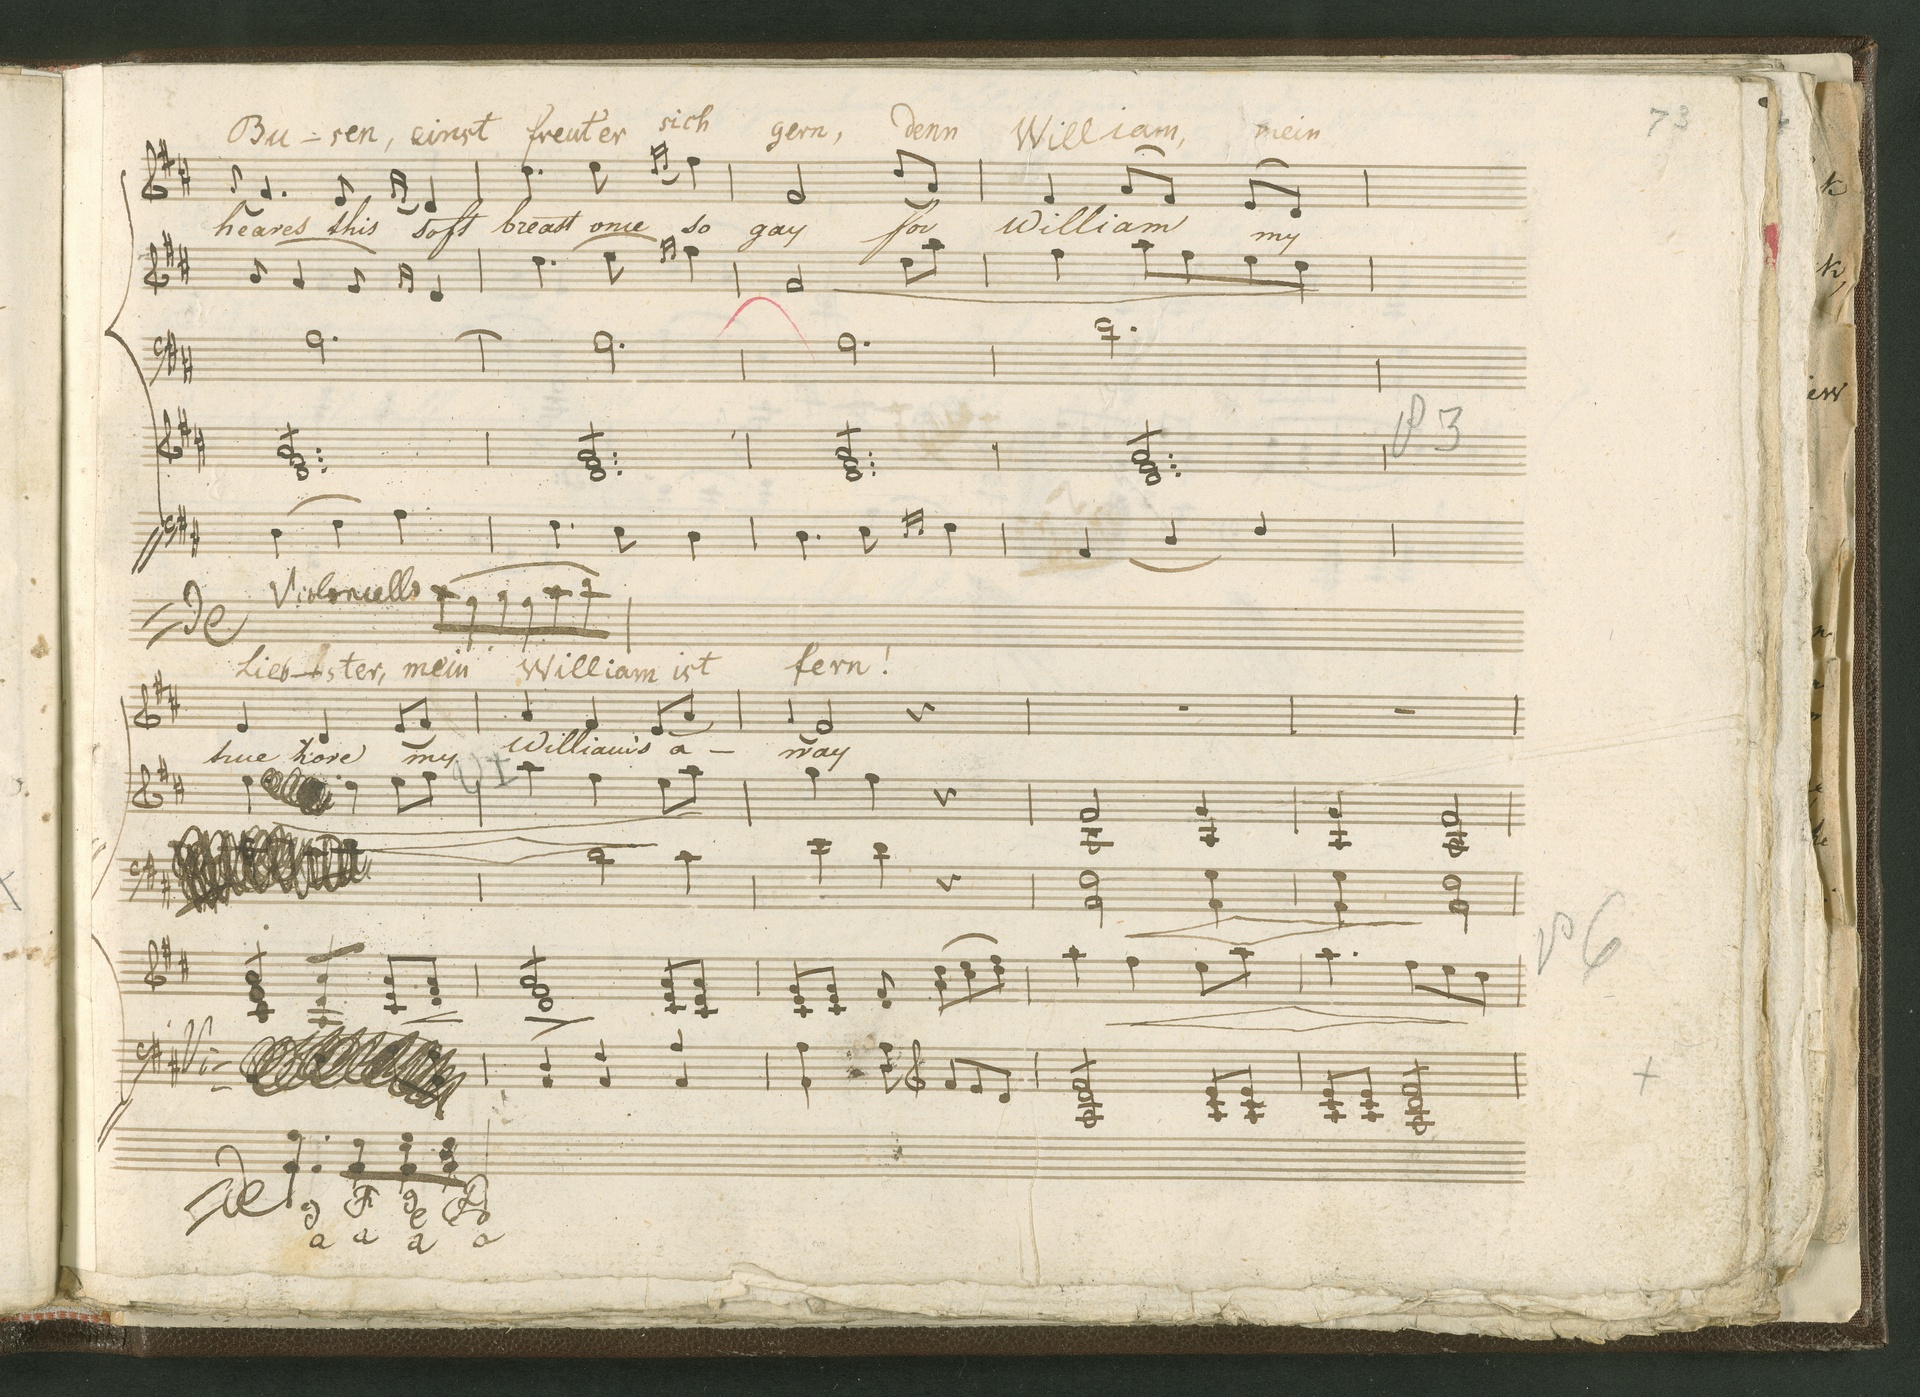 73
Bu - sen, einst freut er sich gern, denn William, mein
heaves this soft breast once so gay for William my
Violoncello
Lieb-ster, mein William ist fern!
true love my William's a - way
de
g F ge
a a a a